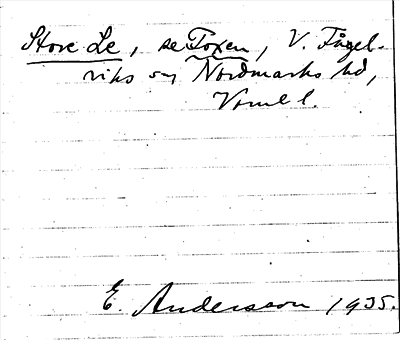 Store Le, se Foxen, V. Fågel-
viks og Nordmarks hd,
Vrml l.
E. Andersson 1935.